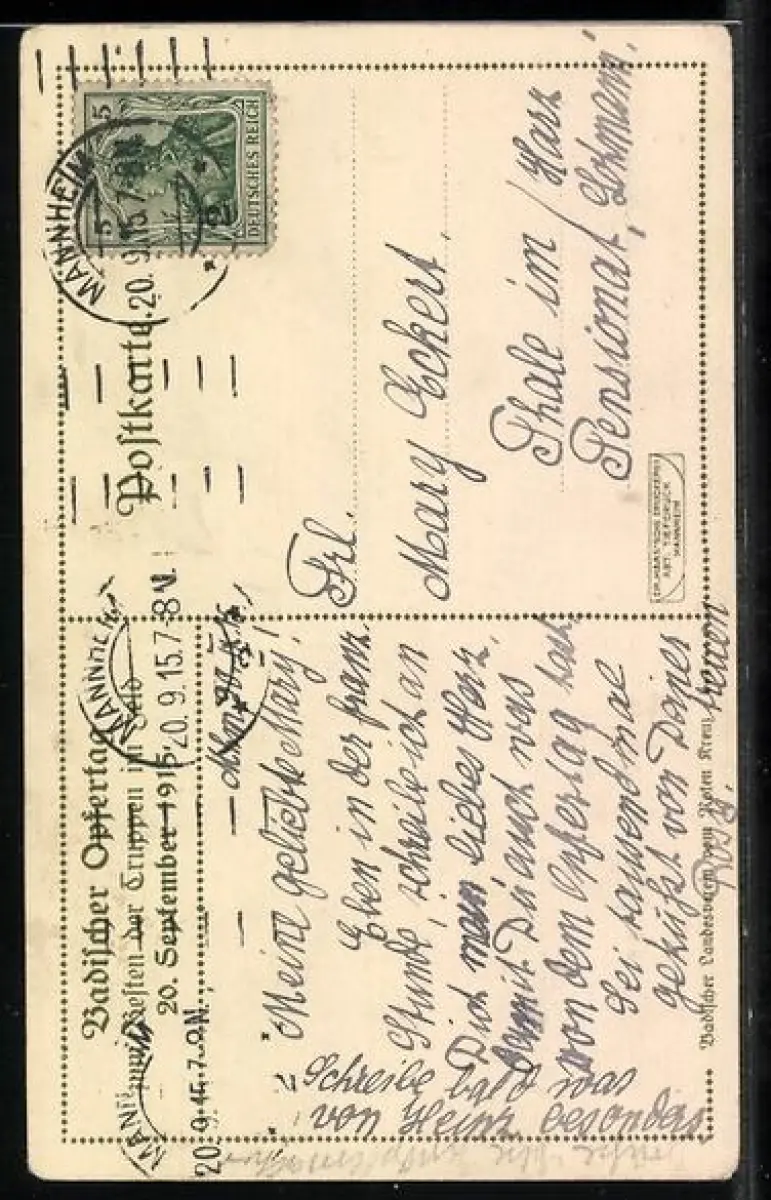 Badischer Opfertag
zum Besten der Truppen im Feld
20. September 1915
Postkarte
MANNHEIM
20. 9. 15. 7-8 N.
MANNHEIM
20. 9. 15. 7-8 N.
5 5
DEUTSCHES REICH
20. 9. 15. 7-8 N.
Meine geliebte Mary!
Eben in der franz.
Stunde, schreibe ich an
Dich mein liebes Herz,
damit Du auch was
von dem Opfertag hast
Sei tausendmal
geküsst von Deiner
treuen
Rosy.
Schreibe bald was
von Heinz besonders
Frl.
Mary Eckert.
Thale im / Harz
Pensionat, Lohmann.
Badischer Landesverein vom Roten Kreuz
ABT. TIEFDRUCK
MANNHEIM